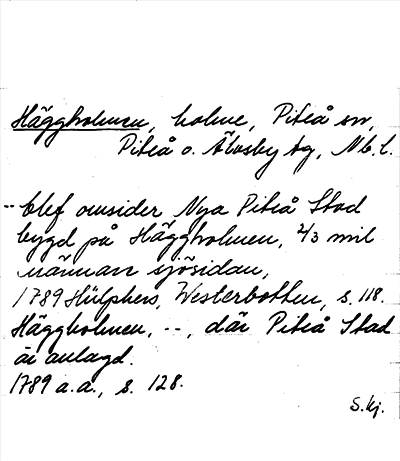 Häggholmen, holme, Piteå sn,
Piteå o. Älvsby tg, Nb. l.
-- blef omsider Nya Piteå Stad
bygd på Häggholmen, 2/3 mil
närmare sjösidan,
1789 Hülphers, Westerbotten, s. 118.
Häggholmen, --, där Piteå Stad
är anlagd.
1789 a.a., s. 128.
S. Kj.